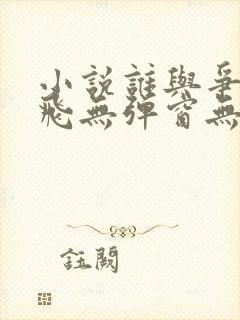 小說誰與爭
飛無彈窗無
註闕